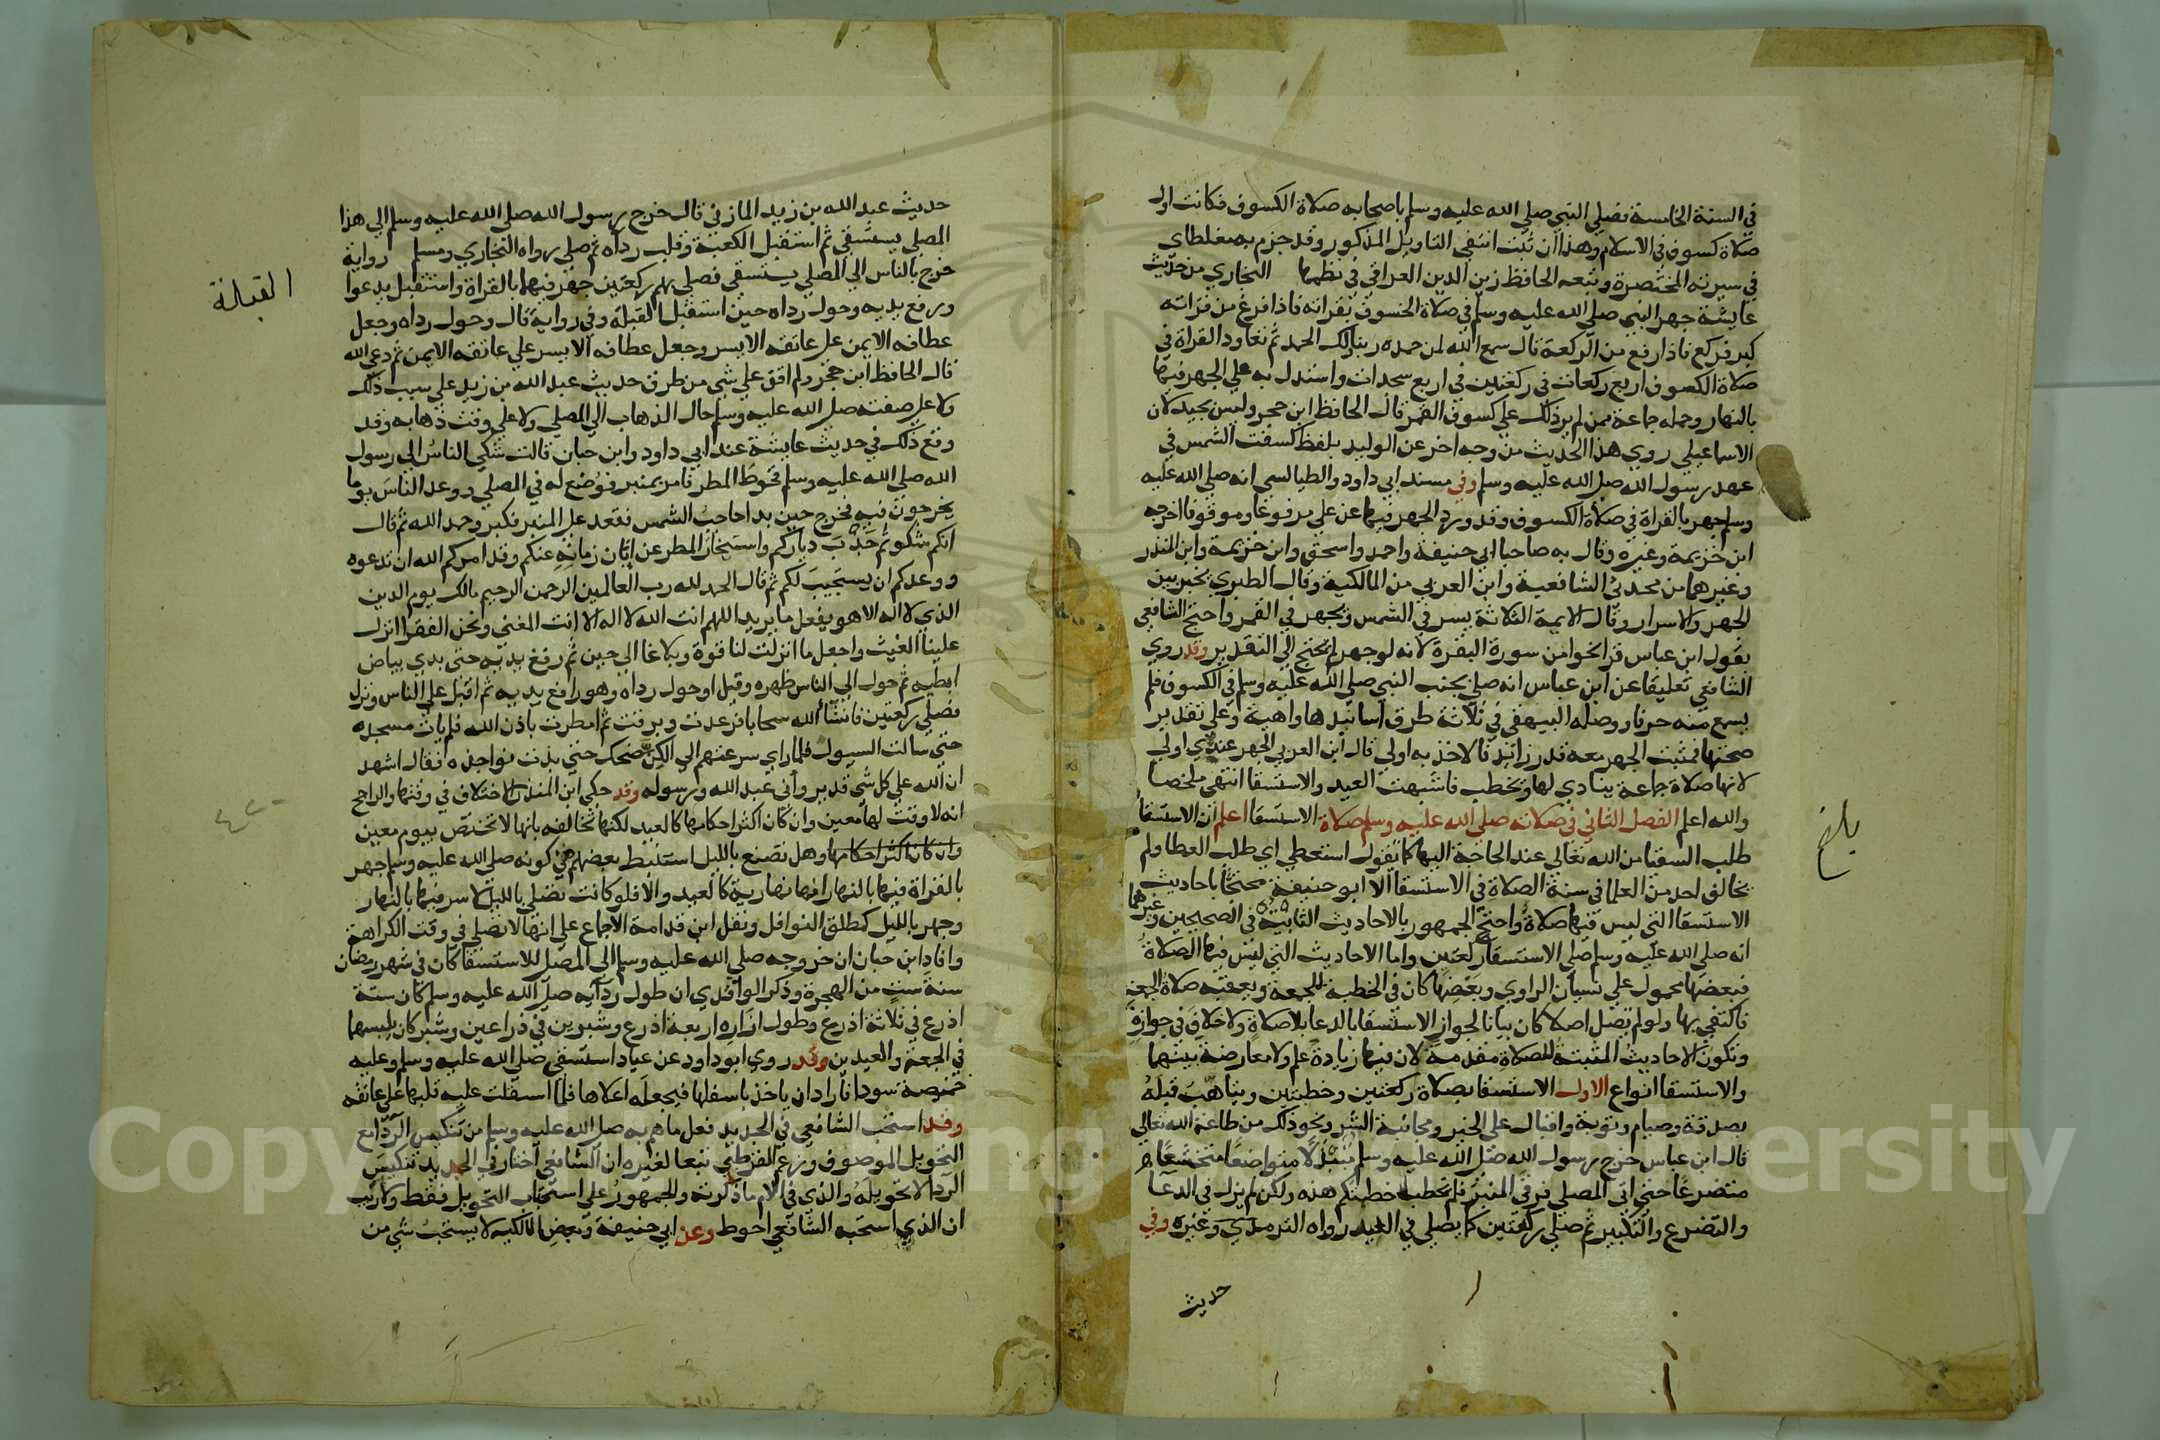 في السنة الخامسة فصلي النبي صلي الله عليه وسلم باصحابه صلاة الكسوف فكانت اول
صلاة كسوف في الاسلام وهذا ان ثبت انتفي التاويل المذكور وقد جزم به مغلطاي
في سيرته المختصرة وتبعه الحافظ زين الدين العراقي في نظمها البخاري من حديث
عايشة جهر النبي صلي الله عليه وسلم في صلاة الخسوف بقراته فاذا فرغ من قراته
كبر فركع فاذا رفع من الركعة قال سمع الله لمن حمده ربنا لك الحمد ثم يعاود القراة في
صلاة الكسوف اربع ركعات في ركعتين في اربع سجدات واستدل به علي الجهر فيها
بالنهار وحمله جماعة ممن لم ير ذلك علي كسوف القمر قال الحافظ ابن حجر وليس بجيد لان
الاسماعيلي روي هذا الحديث من وجه اخر عن الوليد بلفظ كسفت الشمس في
عهد رسول الله صلي الله عليه وسلم وفي مسند ابي داود الطيالسي انه صلي الله عليه
وسلم جهر بالقراة في صلاة الكسوف وقد ورد الجهر فيها عن علي مرفوعا وموقوفا اخرجه
ابن خزيمة وغيره وقال به صاحبا ابي حنيفة واحمد واسحق وابن خزيمة وابن المنذر
وغيرهما من محدثي الشافعية وابن العربي من المالكية وقال الطبري يخير بين
الجهر والاسرار وقال الايمة الثلاثة يسر في الشمس ويجهر في القمر واحتج الشافعي
بقول ابن عباس قرا نحوا من سورة البقرة لانه لو جهر لم يحتج الي التقدير وقد روي
الشافعي تعليقا عن ابن عباس انه صلي بجنب النبي صلي الله عليه وسلم في الكسوف فلم
يسمع منه حرفا ووصله البيهقي في ثلاثة طرق اسانيدها واهية وعلي تقدير
صحتها فمثبت الجهر معه قدر زايد فالاخذ به اولي قال ابن العربي الجهر عندي اولي
لانها صلاة جماعة ينادي لها ويخطب فاشبهت العيد والاستسقا انتهي ملخصا
والله اعلم الفصل الثاني في صلاته صلي الله عليه وسلم صلاة الاستسقا اعلم ان الاستسقا
طلب السقيا من الله تعالي عند الحاجة اليها كما تقول استعطي اي طلب العطا ولم
يخالف احد من العلما في سنة الصلاة في الاستسقا الا ابو حنيفة محتجا باحاديث
الاستسقا التي ليس فيها صلاة واحتج الجمهور بالاحاديث الثابتة في الصحيحين وغيرهما
انه صلي الله عليه وسلم صلي الاستسقا ركعتين واما الاحاديث التي ليس فيها الصلاة
فبعضها محمول علي نسيان الراوي وبعضها كان في الخطبة للجمعة ويعقبه صلاة الجمعة
فاكتفي بها ولو لم يصل اصلا كان بيانا لجواز الاستسقا بالدعا بلا صلاة ولا خلاف في جوازه
وتكون الاحاديث المثبتة للصلاة مقدمة لان فيها زيادة علم ولا معارضة بينهما
والاستسقا انواع الاول الاستسقا بصلاة ركعتين وخطبتين ويتاهب قبله
بصدقة وصيام وتوبة واقبال علي الخير ومجانبة الشر ونحو ذلك من طاعة الله تعالي
قال ابن عباس خرج رسول الله صلي الله عليه وسلم متبذلا متواضعا متخشعا
متضرعا حتي اتي المصلي فرقي المنبر فلم يخطب خطبتكم هذه ولكن لم يزل في الدعا
والتضرع والتكبير ثم صلي ركعتين كما يصلي في العيد رواه الترمذي وغيره وفي
حديث
بلغ
حديث عبد الله بن زيد المازني قال خرج رسول الله صلي الله عليه وسلم الي هذا
المصلي يستسقي ثم استقبل الكعبة وقلب رداه ثم صلي رواه البخاري ومسلم رواية
خرج بالناس الي المصلي يستسقي فصلي بهم ركعتين جهر فيهما بالقراة واستقبل يدعوا
القبلة
ورفع يديه وحول رداه حين استقبل القبلة وفي رواية قال وحول رداه وجعل
عطافه الايمن علي عاتقه الايسر وجعل عطافه الايسر علي عاتقه الايمن ثم دعي الله
قال الحافظ ابن حجر ولم اقف علي شي من طرق حديث عبد الله بن زيد علي سبب ذلك
ولا علي صفته صلي الله عليه وسلم حال الذهاب الي المصلي ولا علي وقت ذهابه وقد
وقع ذلك في حديث عايشة عند ابي داود وابن حبان قالت شكي الناس الي رسول
الله صلي الله عليه وسلم قحوط المطر فامر بمنبر فوضع له في المصلي ووعد الناس يوما
يخرجون فيه فخرج حين بدا حاجب الشمس فقعد علي المنبر فكبر وحمد الله ثم قال
انكم شكوتم جدب دياركم واستيخار المطر عن ابان زمانه عنكم وقد امركم الله ان تدعوه
ووعدكم ان يستجيب لكم ثم قال الحمد لله رب العالمين الرحمن الرحيم مالك يوم الدين
الذي لا اله الا هو يفعل ما يريد اللهم انت الله لا اله الا انت الغني ونحن الفقرا انزل
علينا الغيث واجعل ما انزلت لنا قوة وبلاغا الي حين ثم رفع يديه حتي بدي بياض
ابطيه ثم حول الي الناس ظهره وقبل او حول رداه وهو رافع يديه ثم اقبل علي الناس ونزل
فصلي ركعتين فانشا الله سحابا فرعدت وبرقت ثم امطرت باذن الله فلم يات مسجده
حتي سالت السيول فلما راي سرعتهم الي الكن ضحك حتي بدت نواجذه فقال اشهد
ان الله علي كل شي قدير واني عبد الله ورسوله وقد حكي ابن المنذر الاختلاف في وقتها والراجح
انه لا وقت لها معين وان كان اكثر احكامها كالعيد لكنها تخالفه بانها لا تختص بيوم معين
وان كان اكثر احكامها وهل تصنع بالليل استنبط بعضهم من كونه صلي الله عليه وسلم جهر
بالقراة فيها بالنهار انها نهارية كالعيد والا فلو كانت تصلي بالليل لاسر فيها بالنهار
وجهر بالليل كمطلق النوافل ونقل ابن قدامة الاجماع علي انها لا تصلي في وقت الكراهة
وافاد ابن حبان ان خروجه صلي الله عليه وسلم الي المصلي للاستسقا كان في شهر رمضان
سنة ست من الهجرة وذكر الواقدي ان طول ردايه صلي الله عليه وسلم كان ستة
اذرع في ثلاثة اذرع وطول ازاره اربعة اذرع وشبرين في دراعين وشبر كان يلبسهما
في الجمعة والعيدين وقد روي ابو داود عن عباد استسقي صلي الله عليه وسلم وعليه
خميصة سودا فاراد ان ياخذ باسفلها فيجعله اعلاها فلما اسثقلت عليه قلبها علي عاتقه
وقد استحب الشافعي في الجديد فعل ما هم به صلي الله عليه وسلم من تنكيس الردا مع
التحويل الموصوف وزعم القرطبي تبعا لغيره ان الشافعي اختار في الجديد تنكيس
الردا لا تحويله والذي في الام ما ذكرته والجمهور علي استحباب التحويل فقط ولا ريب
ان الذي استحبه الشافعي احوط وعن ابي حنيفة وبعض المالكية لا يستحب شي من
Copyright © King Saud University